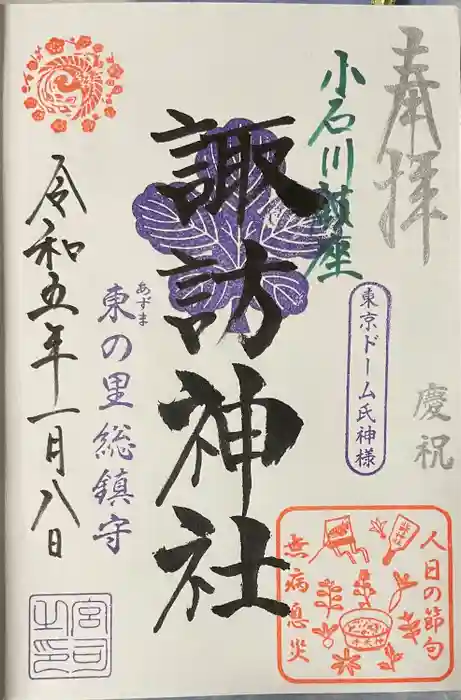 奉拝
慶祝
小石川鎮座
東京ドーム氏神様
諏訪神社
あずま
東の里総鎮守
令和五年一月八日
人日の節句
無病息災
宮司之印